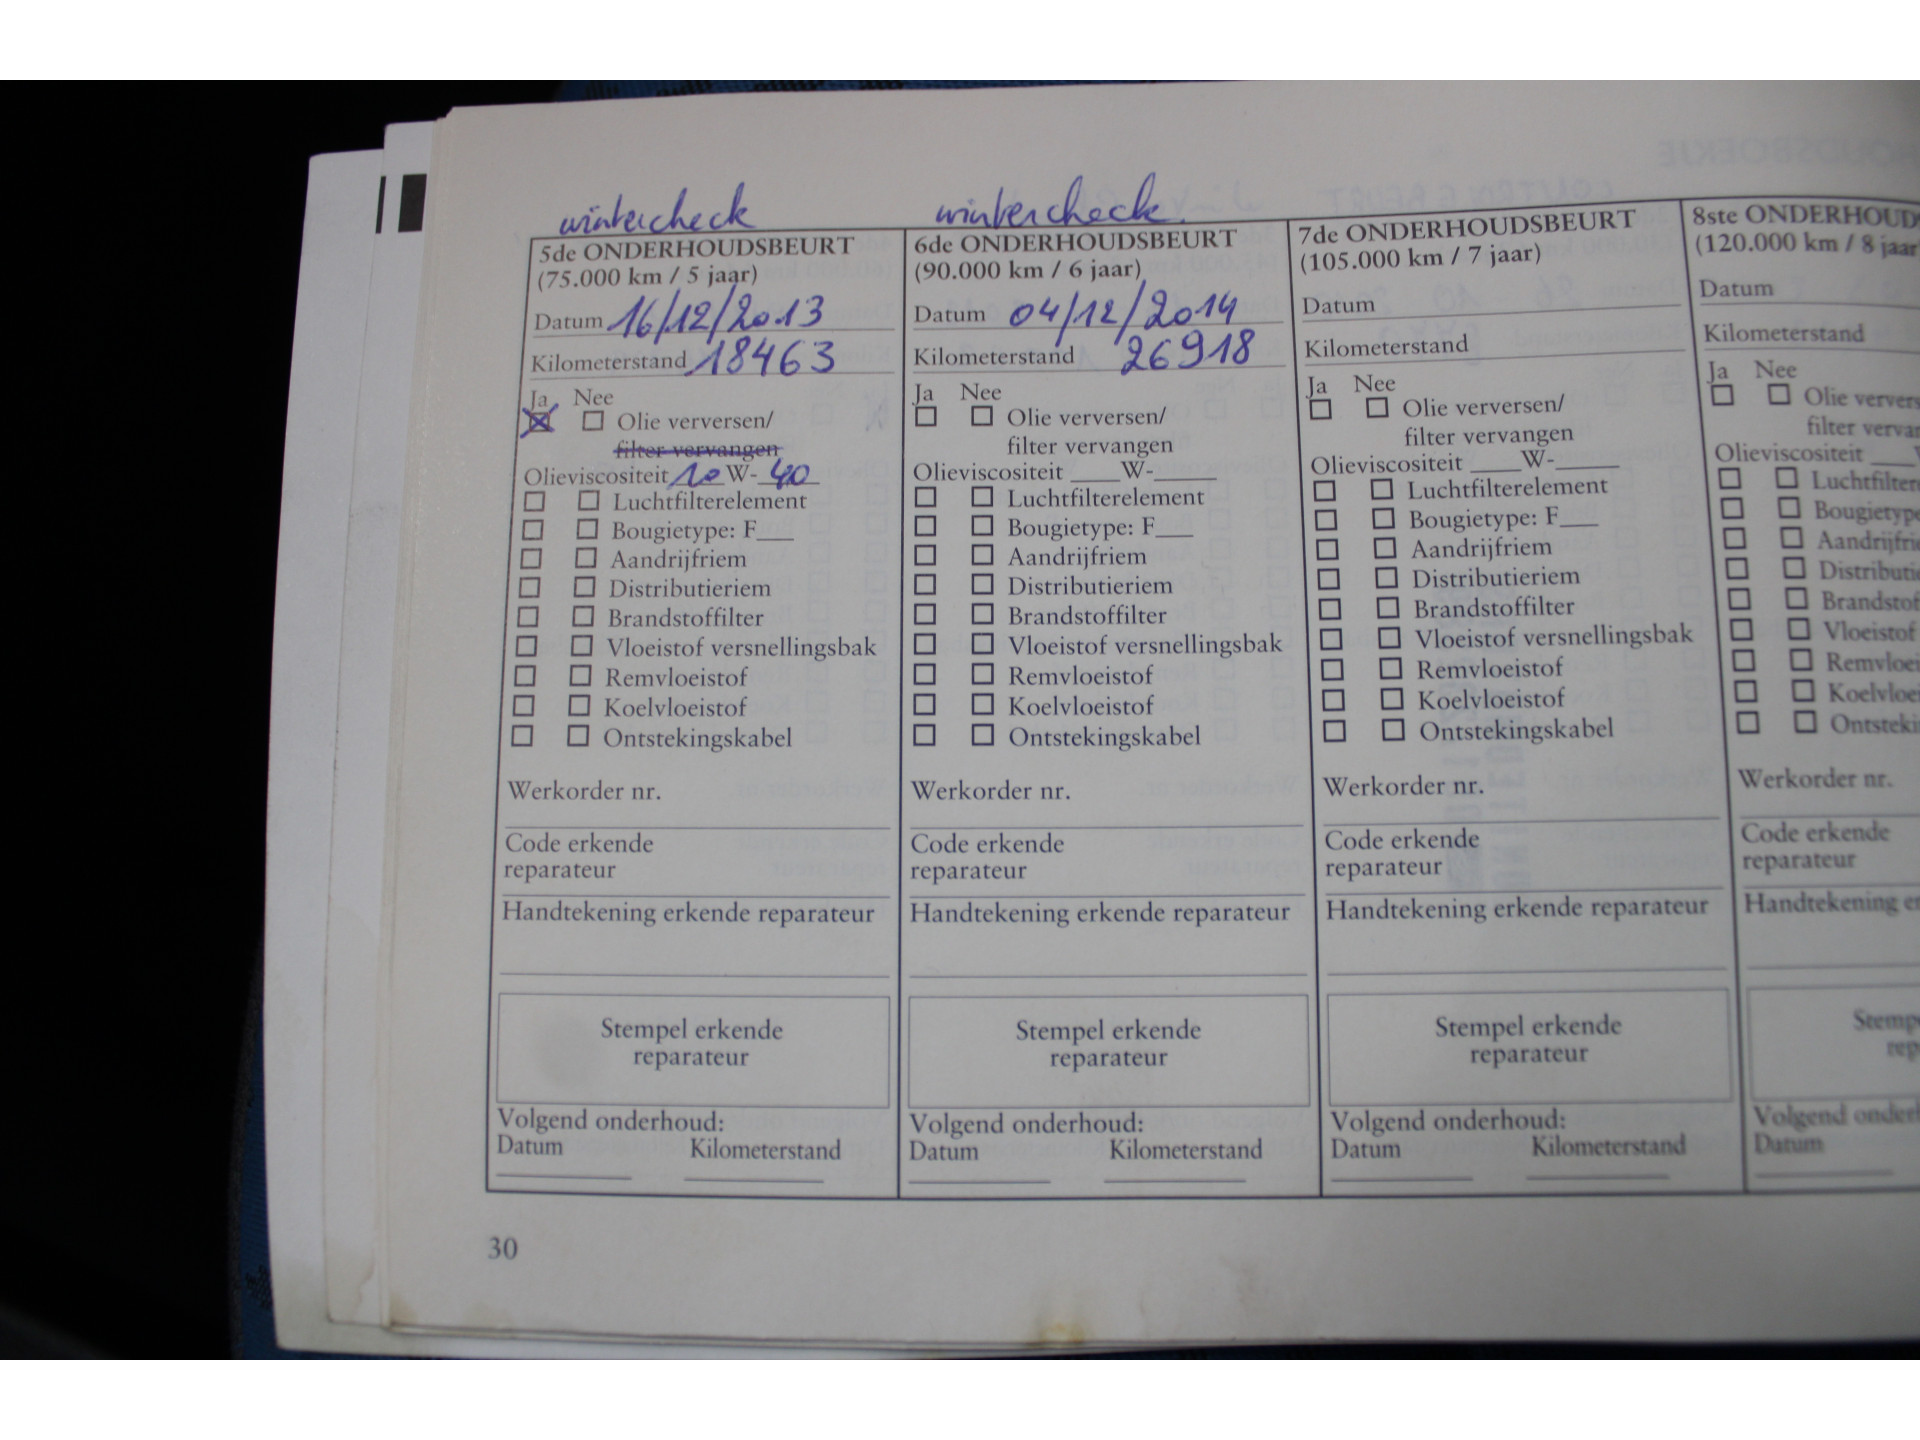 wintercheck
5de ONDERHOUDSBEURT
(75.000 km / 5 jaar)
Datum 16/12/2013
Kilometerstand 18463
Ja Nee
Olie verversen/
filter vervangen
Olieviscositeit 10 W- 40
Luchtfilterelement
Bougietype: F___
Aandrijfriem
Distributieriem
Brandstoffilter
Vloeistof versnellingsbak
Remvloeistof
Koelvloeistof
Ontstekingskabel
Werkorder nr.
Code erkende
reparateur
Handtekening erkende reparateur
Stempel erkende
reparateur
Volgend onderhoud:
Datum Kilometerstand
wintercheck
6de ONDERHOUDSBEURT
(90.000 km / 6 jaar)
Datum 04/12/2014
Kilometerstand 26918
Ja Nee
Olie verversen/
filter vervangen
Olieviscositeit ____W-_____
Luchtfilterelement
Bougietype: F___
Aandrijfriem
Distributieriem
Brandstoffilter
Vloeistof versnellingsbak
Remvloeistof
Koelvloeistof
Ontstekingskabel
Werkorder nr.
Code erkende
reparateur
Handtekening erkende reparateur
Stempel erkende
reparateur
Volgend onderhoud:
Datum Kilometerstand
7de ONDERHOUDSBEURT
(105.000 km / 7 jaar)
Datum
Kilometerstand
Ja Nee
Olie verversen/
filter vervangen
Olieviscositeit ____W-_____
Luchtfilterelement
Bougietype: F___
Aandrijfriem
Distributieriem
Brandstoffilter
Vloeistof versnellingsbak
Remvloeistof
Koelvloeistof
Ontstekingskabel
Werkorder nr.
Code erkende
reparateur
Handtekening erkende reparateur
Stempel erkende
reparateur
Volgend onderhoud:
Datum Kilometerstand
8ste ONDERHOUD
(120.000 km / 8 jaar
Datum
Kilometerstand
Ja Nee
Olie ververs
filter verva
Olieviscositeit ___
Luchtfilter
Bougietype
Aandrijfri
Distributi
Brandstof
Vloeistof
Remvloei
Koelvloei
Ontsteki
Werkorder nr.
Code erkende
reparateur
Handtekening er
Stemp
rep
Volgend onder
Datum
30